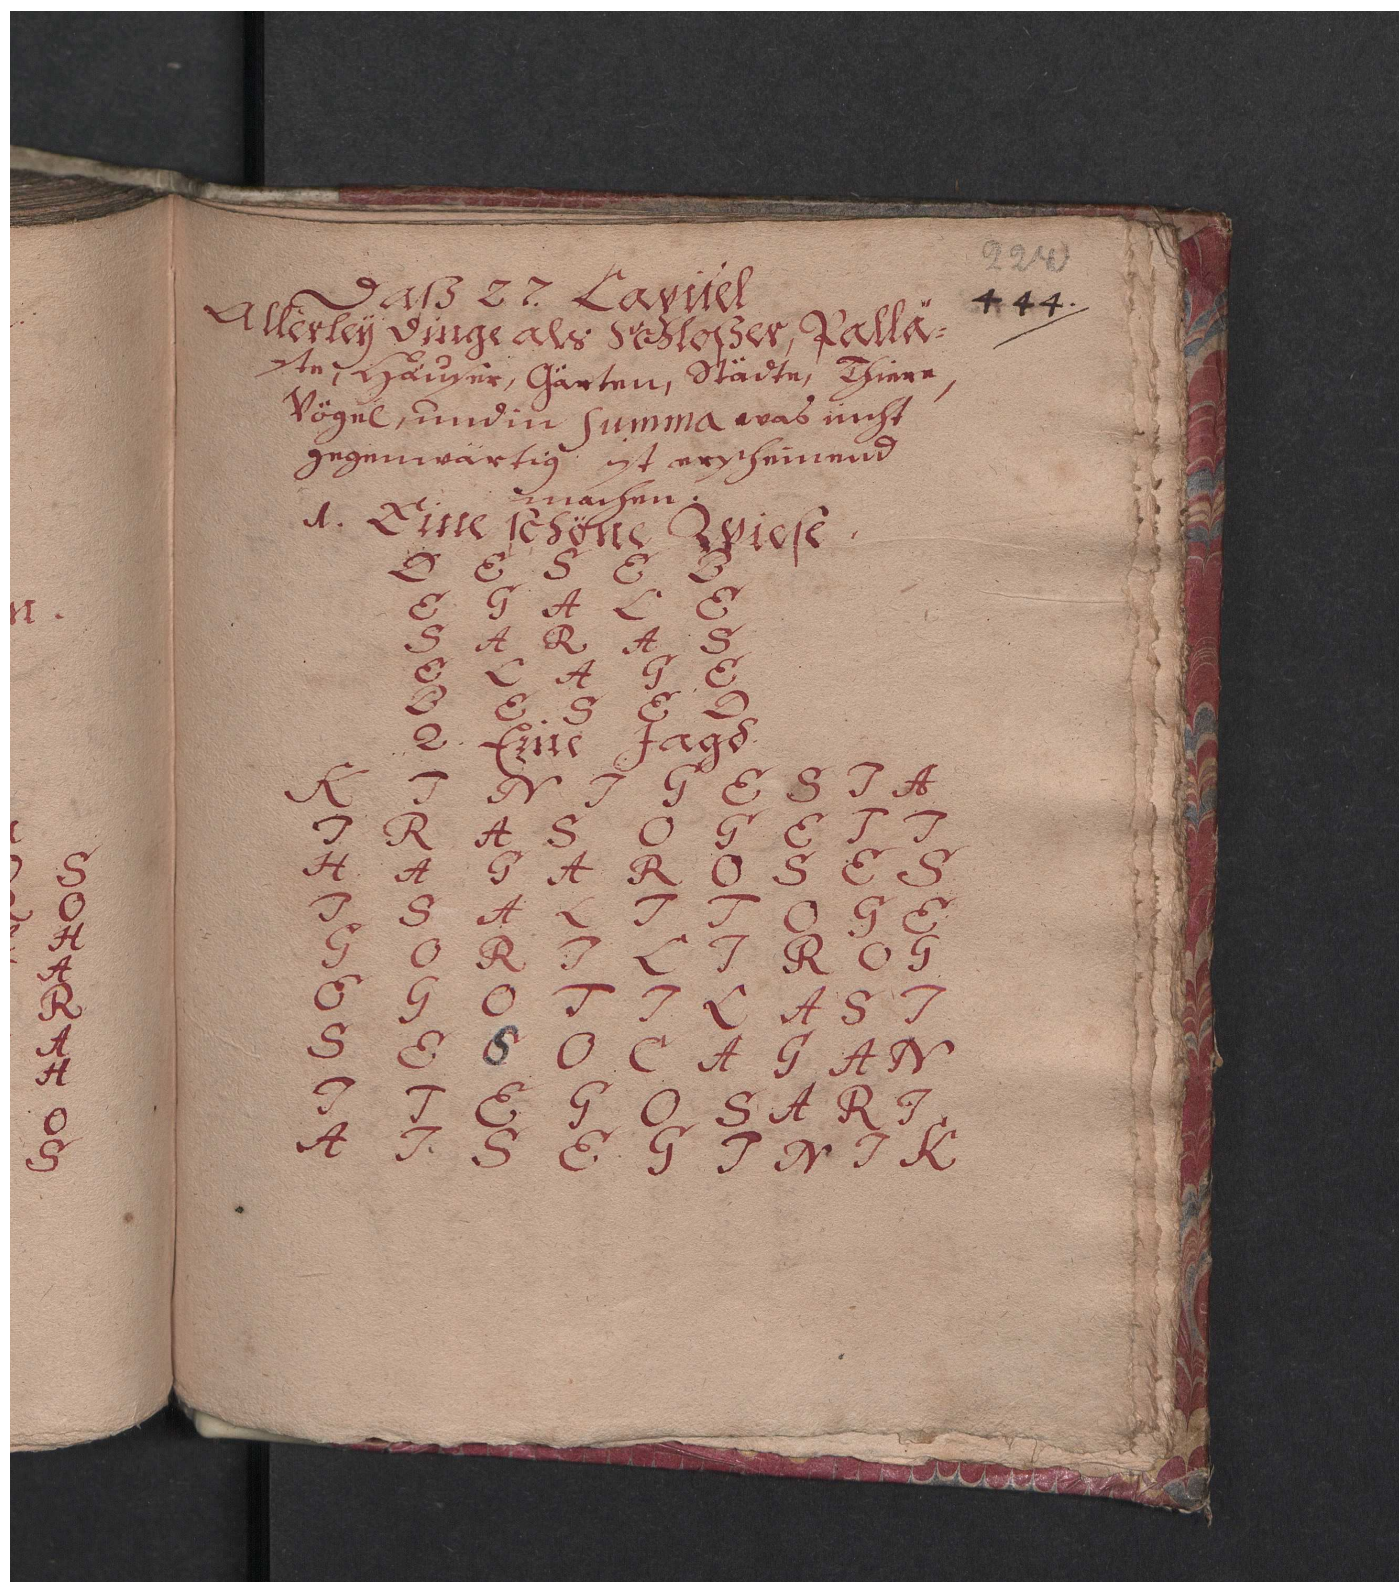 444.
Daß 27. Capitel
Allerley dinge als Schloßer, Pallä=
ste, Häuser, Gärten, Städte, Thiere,
Vögel, und in summa was nicht
gegenwärtig ist erscheinend
machen.
1. Eine schöne Wiese.
D E S E B
E G A L E
S A R A S
E L A G E
B E S E D
2. Eine Jagd
K I N I G E S I A
I R A S O G E T I
H A G A R O S E S
I S A L I T O G E
G O R I L I R O G
E G O T I L A S I
S E S O C A G A N
I T E G O S A R I
A I S E G I N I K
S
O
H
A
R
A
H
O
S